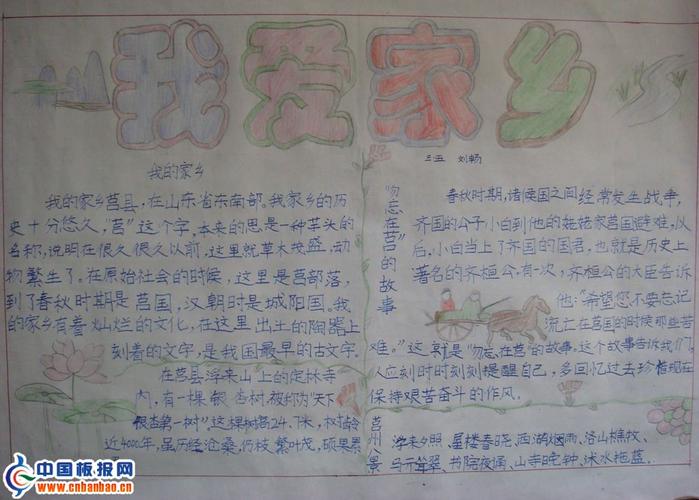 我爱家乡
我的家乡
我的家乡莒县，在山东省东南部。我家乡的历
史十分悠久，“莒”这个字，本来的思是一种草头的
名称，说明在很久很久以前，这里就草木茂盛，动
物繁生了。在原始社会的时候，这里是莒部落，
到了春秋时期是莒国，汉朝时是城阳国。我
的家乡有着灿烂的文化，在这里出土的陶器上
刻着的文字，是我国最早的古文字。
在莒县浮来山上的定林寺
内，有一棵银杏树，被称为“天下
银杏第一树”，这棵树高24.7米，树龄
近4000年，虽历经沧桑，仍枝繁叶茂，硕果累
三五 刘畅
“勿忘在莒”的故事
春秋时期，诸侯国之间经常发生战争，
齐国的公子小白到他的姥姥家莒国避难，以
后，小白当上了齐国的国君，也就是历史上
著名的齐桓公，有一次，齐桓公的大臣告诉
他：“希望您不要忘记
流亡在莒国的时候那些苦
难。”这就是“勿忘在莒”的故事。这个故事告诉我们，
人应刻时时刻刻提醒自己，多回忆过去珍惜现在
保持艰苦奋斗的作风。
莒州八景
浮来夕照、星楼春晓、西湖烟雨、洛山樵牧、
马亓耸翠、书院夜涌、山寺晓钟、沭水拖蓝。
中国板报网
www.cnbanbao.cn